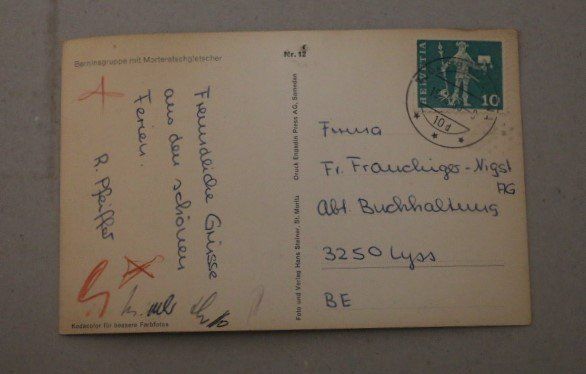 Berninagruppe mit Morteratschgletscher
Nr. 12
Freundliche Grüsse
aus den schönen
Ferien.
R. Pfeiffer
Kodacolor für bessere Farbfotos
Foto und Verlag Hans Steiner, St. Moritz
Druck Engadin Press AG, Samedan
HELVETIA
10
10d
Firma
Fr. Frauchiger-Nigst
AG
Abt. Buchhaltung
3250 Lyss
BE